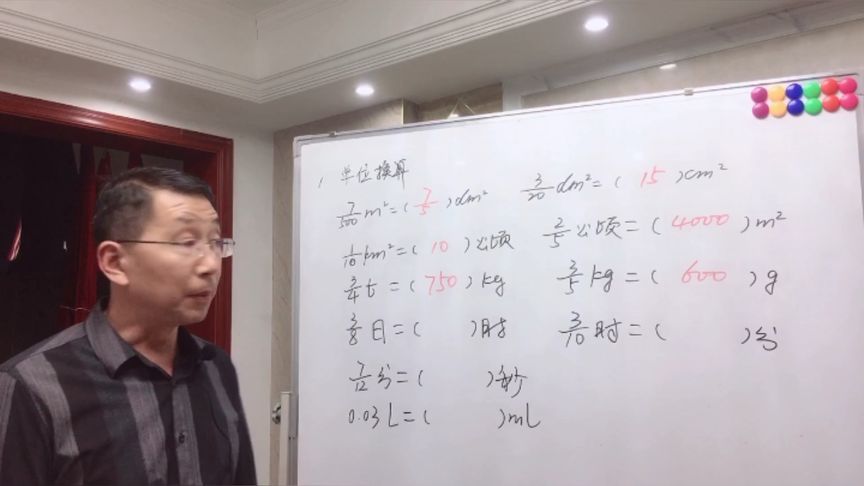 1、单位换算
7/500 m²=( 7/5 )dm² 3/20 dm²=( 15 )cm²
1/10 km²=( 10 )公顷 2/5 公顷=( 4000 )m²
3/4 t=( 750 )kg 3/5 kg=( 600 )g
3/8 日=( )时 3/10 时=( )分
7/12 分=( )秒
0.03L=( )mL